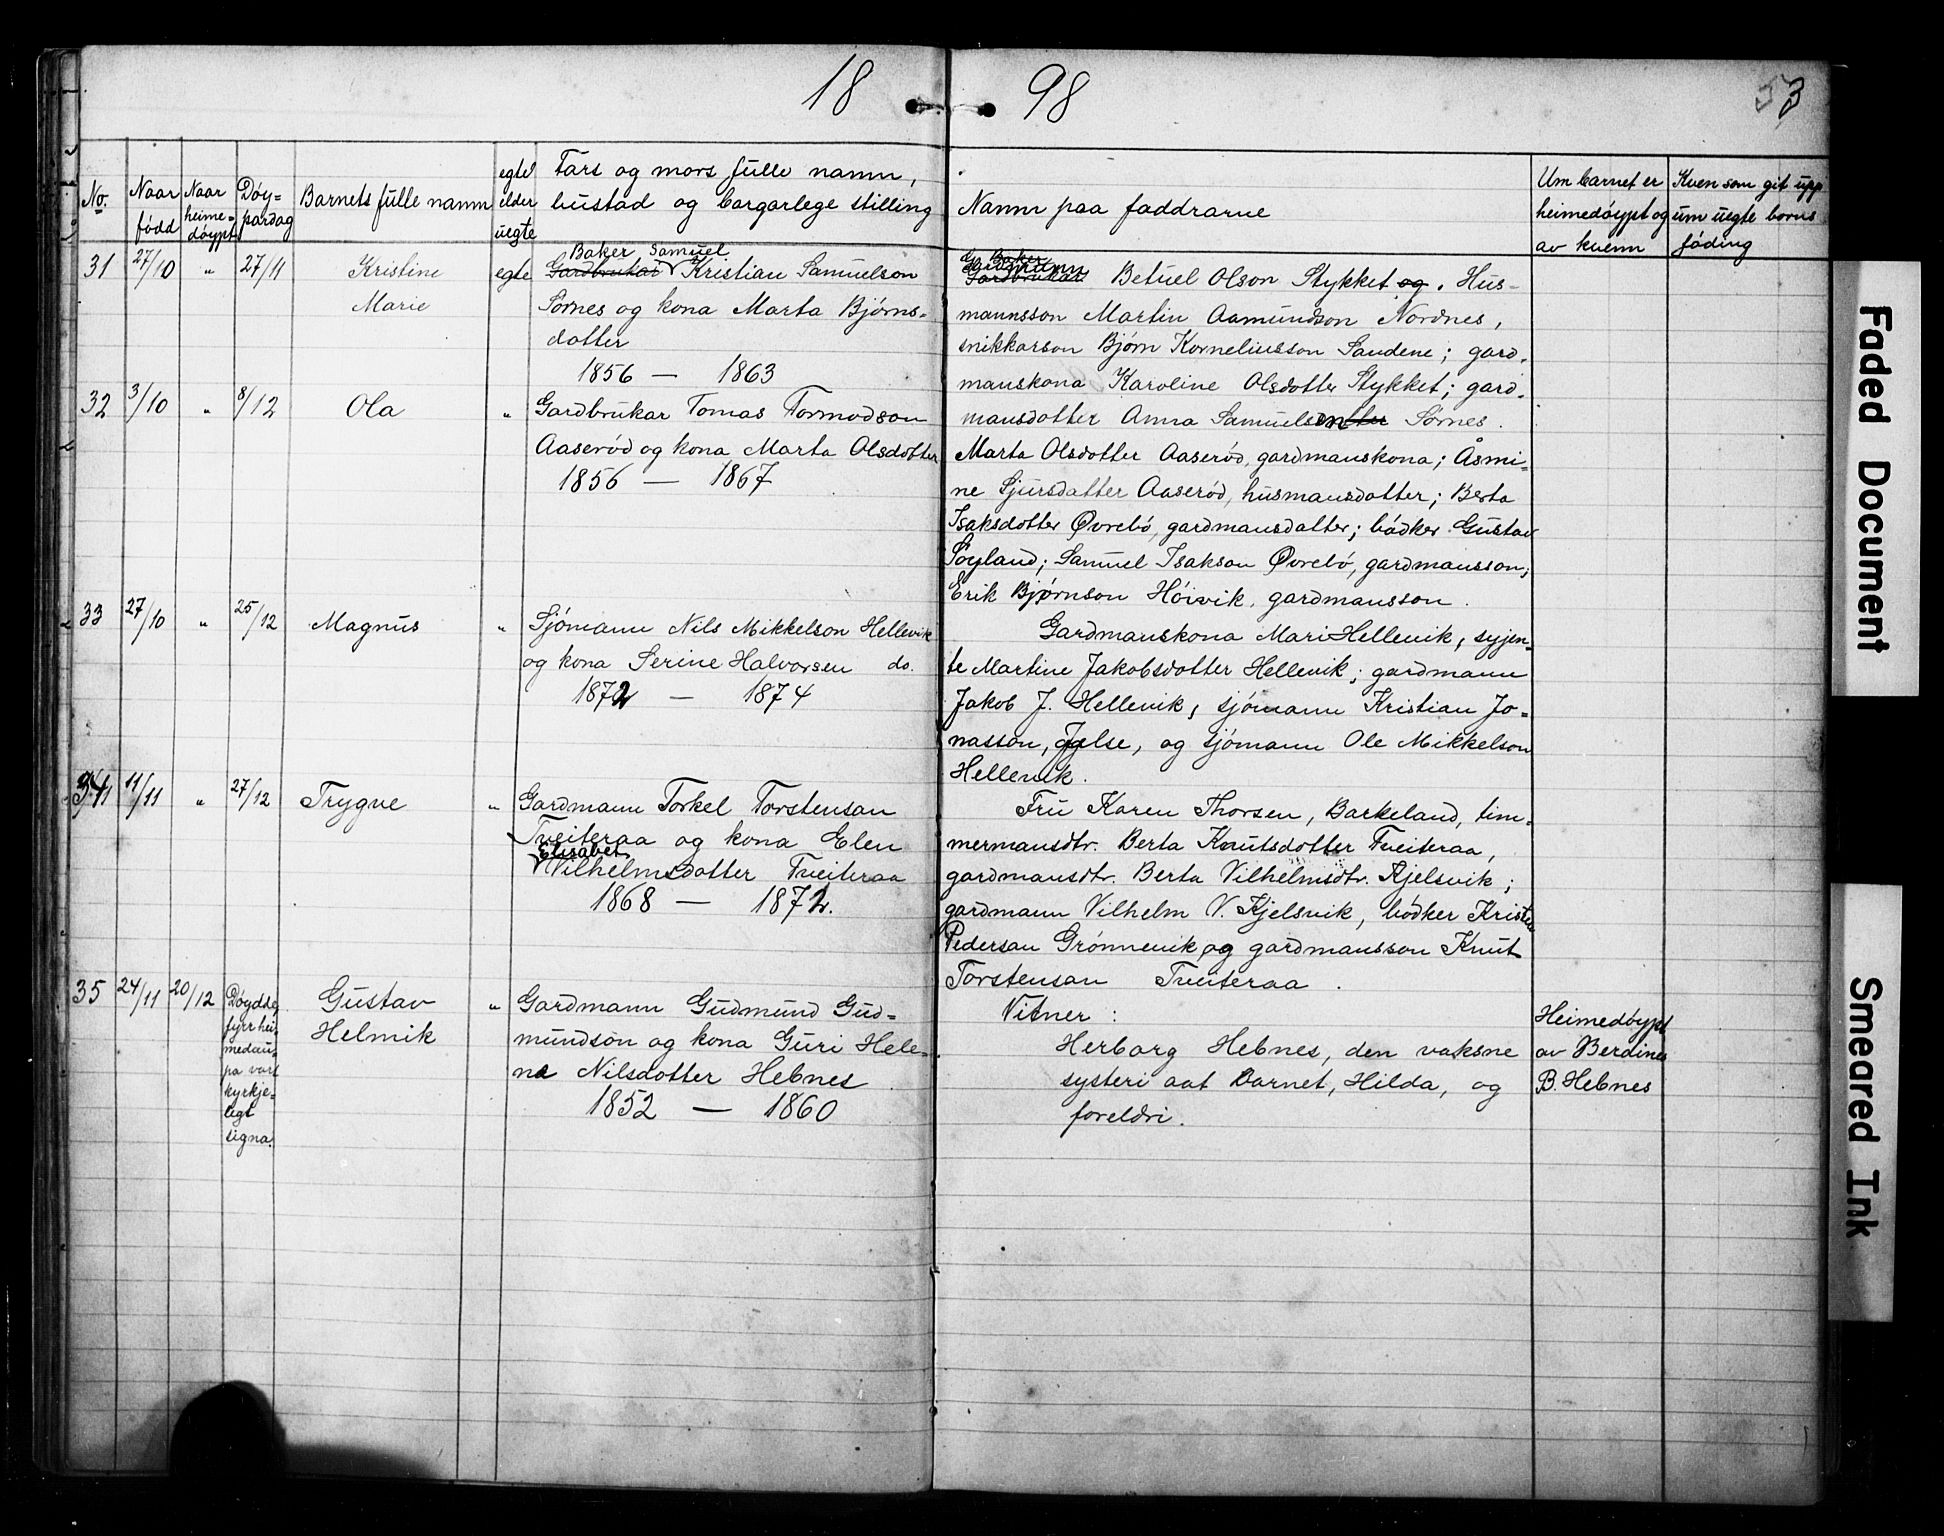 18 98 53
No. Naar fødd Naar heime= døypt Døy= pardag Barnets fulle namn egte elder uegte Fars og mors fulle namn, bustad og borgarlege stilling Namn paa faddrarne Um barnet er heimedøypt og av kvenn Kven som git upp um uegte borns føding
31 27/10 " 27/11 Kristine Marie egte
Baker Samuel
Gardbrukar Kristian Samuelson
Sørnes og kona Marta Bjørns=
dotter
1856 — 1863
Baker
Gardmann
Gardbrukar Betuel Olson Stykket og, Hus=
mannsson Martin Aamundson Nordnes,
snikkarson Bjørn Korneliusson Sandene; gard=
manskona Karoline Olsdotter Stykket; gard=
mansdotter Anna Samuelson Sørnes.
32 3/10 " 8/12 Ola "
Gardbrukar Tomas Tormodson
Aaserød og kona Marta Olsdotter
1856 — 1867
Marta Olsdotter Aaserød, gardmanskona; Åsmi=
ne Sjursdatter Aaserød, husmansdotter; Berta
Isaksdotter Øvrebø, gardmansdatter; bødker Gustav
Søyland; Samuel Isakson Øvrebø, gardmansson;
Erik Bjørnson Høivik, gardmansson.
33 27/10 " 25/12 Magnus "
Sjømann Nils Mikkelson Hellevik
og kona Serine Halvorsen do.
1872 — 1874
Gardmanskona Mari Hellevik, syjen=
te Martine Jakobsdotter Hellevik; gardmann
Jakob J. Hellevik, sjømann Kristian Jo=
nasson, Jelse, og sjømann Ole Mikkelson
Hellevik.
34 11/11 " 27/12 Trygve "
Gardmann Torkel Torstensan
Tveiteraa og kona Elen
Elisabet
Vilhelmsdotter Tveiteraa
1868 — 1872.
Fru Karen Thorsen, Barkeland, tim=
mermansdtr. Berta Knutsdotter Tveiteraa,
gardmansdtr. Berta Vilhelmsdtr. Kjelsvik;
gardmann Vilhelm V. Kjelsvik, bødker Kristen
Pedersan Grønnevik og gardmansson Knut
Torstensan Tveiteraa.
35 24/11 20/12
Døydde
fyrr hei=
medau=
pa vart
kyrkje=
legt
signa.
Gustav
Helmik
"
Gardmann Gudmund Gud=
mundson og kona Guri Hele=
ne Nilsdotter Hebnes
1852 — 1860
Vitner:
Herborg Hebnes, den vaksne
systeri aat barnet, Hilda, og
foreldri.
Heimedøypt
av Berdines
B. Hebnes
Faded Document
Smeared Ink